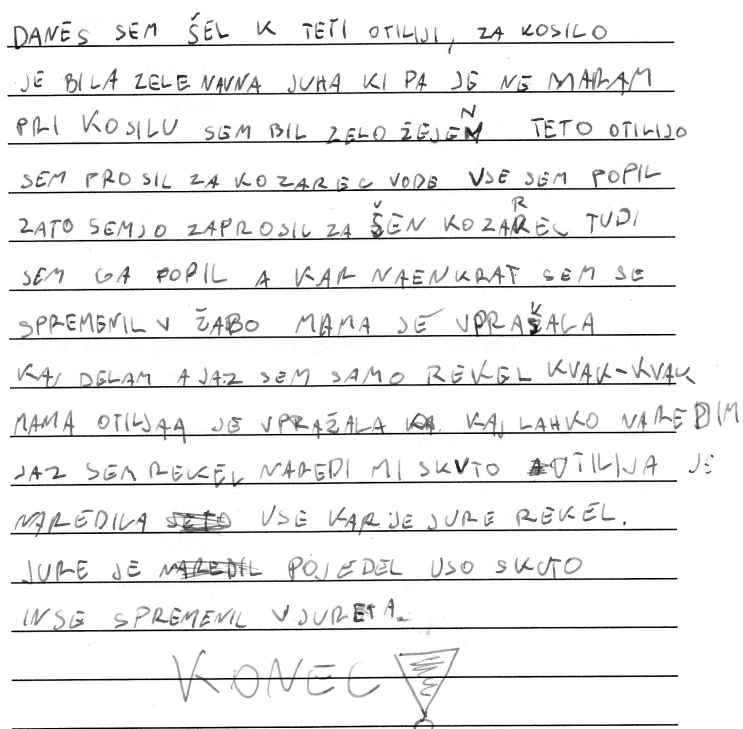 DANES SEM ŠEL K TETI OTILIJI, ZA KOSILO
JE BILA ZELENAVNA JUHA KI PA JE NE MARAM
PRI KOSILU SEM BIL ZELO ŽEJEN TETO OTILIJO
SEM PROSIL ZA KOZAREC VODE VSE SEM POPIL
ZATO SEMJO ZAPROSIL ZA ŠEN KOZAREC TUDI
SEM GA POPIL A KAR NAENKRAT SEM SE
SPREMENIL V ŽABO MAMA JE VPRAŠALA
KAJ DELAM A JAZ SEM SAMO REKEL KVAK-KVAK
MAMA OTILJAA JE VPRAŽALA KAJ LAHKO NAREDIM
JAZ SEM REKEL NAREDI MI SKUTO OTILIJA JE
NAREDILA VSE KAR JE JURE REKEL.
JURE JE POJEDEL USO SKUTO
IN SE SPREMENIL V JURETA.
KONEC